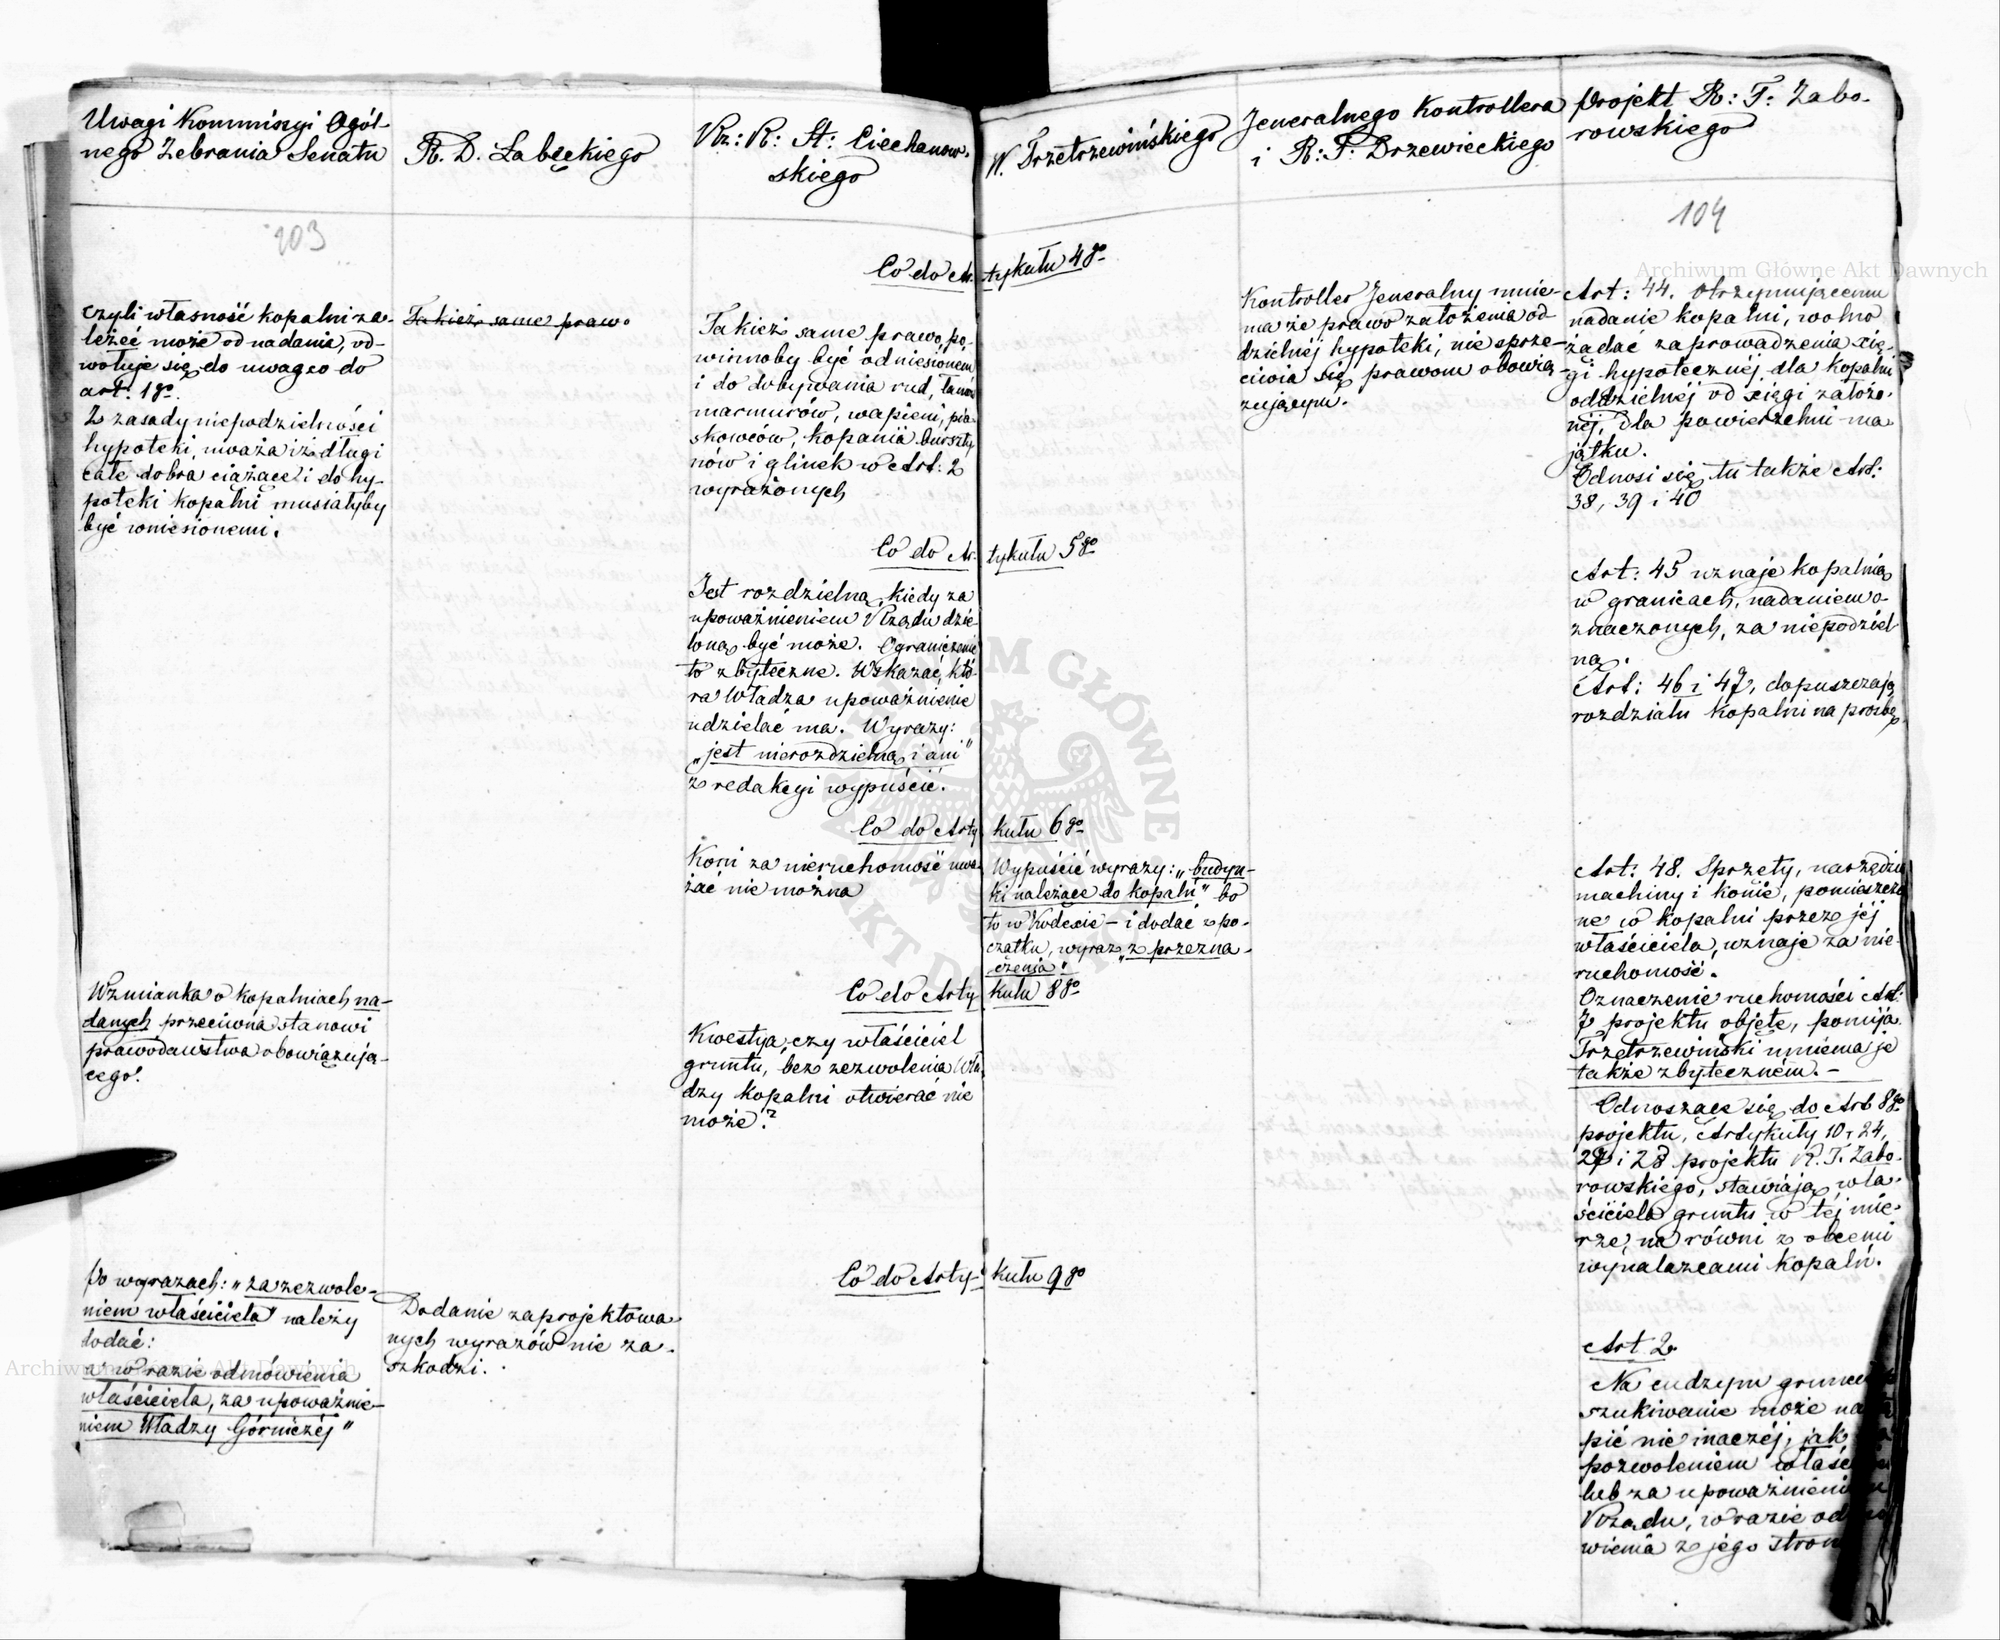 Uwagi Kommissyi Ogól-
nego Zebrania Senatu
R. D. Łabęckiego
Rz: R: St: Ciechanow-
skiego
W. Trzetrzewińskiego
Jeneralnego Kontrollera
i R: T: Drzewieckiego
Projekt R: T: Zabo-
rowskiego
103
104
Co do Ar-
tykułu 4go
czyli własność kopalni za-
leżeć może od nadania, od-
wołuje się do uwag co do
art: 1go.
Z zasady niepodzielności
hypoteki, uważa iż długi
całe dobra ciążące i do hy-
poteki kopalni musiałyby
być wniesionemi.
Takież same prawo
Takież same prawo, po-
winnoby być odniesionem
i do dobywania rud, łamów
marmurów, wapieni, pia-
skowców, kopania burszty-
nów i glinek w Art: 2
wyrażonych
Kontroller Jeneralny mnie-
ma że prawo założenia od-
dzielnéj hypoteki, nie sprze-
ciwia się prawom obowią-
zującym.
Art: 44. Otrzymującemu
nadanie kopalni, wolno
żądać zaprowadzenia xię-
gi hypotecznéj dla kopalni
oddzielnéj od xięgi założo-
néj, dla powierzchni ma-
jątku.
Odnosi się tu także Art:
38, 39 i 40
Co do Ar-
tykułu 5go
Jest rozdzielną, kiedy za
upoważnieniem Rządu dzie-
loną być może. Ograniczenie
to zbyteczne. Wskazać, któ-
ra Władza upoważnienie
udzielać ma. Wyrazy:
„jest nierozdzielną i ani"
z redakcyi wypuścić.
Art: 45 uznaje kopalnią
w granicach, nadaniem o-
znaczonych, za niepodziel-
ną.
Art: 46 i 47, dopuszczają
rozdziału kopalni na prośbę
Co do Arty-
kułu 6go
Koni za nieruchomość uwa-
żać nie można
Wypuścić wyrazy: „budyn-
ki należące do kopalń" bo
to w Kodexie – i dodać z po-
czątku, wyraz „z przezna-
czenia"
Art: 48. Sprzęty, narzędzia
machiny i konie, pomieszczo-
ne w kopalni przez jéj
właściciela, uznaje za nie-
ruchomość.
Oznaczenie ruchomości Art:
7 projektu objęte, pomija.
Trzetrzewiński mniema je
także zbytecznem. –
Co do Arty-
kułu 8go
Wzmianka o kopalniach na-
danych przeciwną stanowi
prawodawstwa obowiązują-
cego.
Kwestya, czy właściciel
gruntu, bez zezwolenia Wła-
dzy kopalni otwierać nie
może?
Odnoszące się do Art 8go
projektu, Artykuły 10, 24,
27 i 28 projektu R. T. Zabo-
rowskiego, stawiają wła-
ściciela gruntu w téj mie-
rze, na równi z obcemi
wynalazcami kopalń.
Co do Arty-
kułu 9go
Po wyrazach: „za zezwole-
niem właściciela" należy
dodać:
„a w razie odmówienia
właściciela, za upoważnie-
niem Władzy Górniczéj"
Dodanie zaprojektowa-
nych wyrazów nie za-
szkodzi.
Art 2.
Na cudzym gruncie
szukiwanie może na
pić nie inaczéj, jak
pozwoleniem właści
lub za upoważnieniem
Rządu, w razie od
wienia z jego stron
Archiwum Główne Akt Dawnych
Archiwum Główne Akt Dawnych